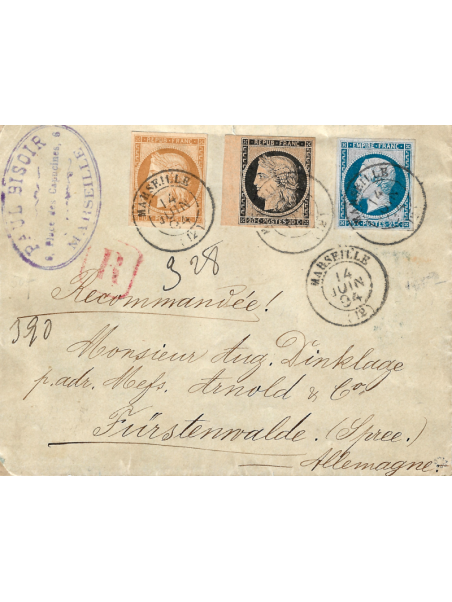 PAUL BISOIR
6, Place des Capucines, 6
MARSEILLE
REPUB. FRANC.
REPUB. FRANC.
20 C. POSTES 20 C.
EMPIRE FRANC.
MARSEILLE
14
JUIN
04
(12)
R
328
MARSEILLE
14
JUIN
04
(12)
Recommandée!
390
Monsieur Aug. Dinklage
p. adr. Mess. Arnold & Co.
Fürstenwalde. (Spree.)
Allemagne.